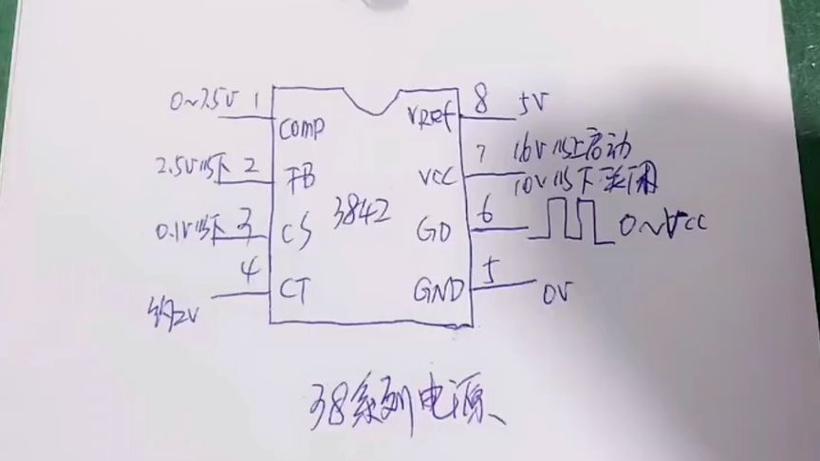 0~7.5V 1 COMP VRef 8 5V
2.5V以下 2 FB VCC 7 16V以上启动
10V以下关闭
3842
0.1V以下 3 CS GD 6 0~VCC
约2V 4 CT GND 5 0V
38系列电源、